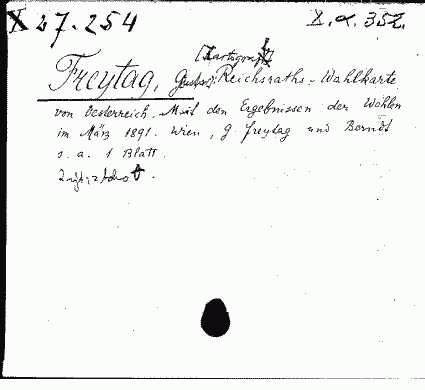 X 27.254 X.α.352.
[Kartograph]
Freytag, Gustav: Reichsraths-Wahlkarte
von Oesterreich. Mit den Ergebnissen der Wahlen
im März 1891. Wien, G. Freytag und Berndt
s. a. 1 Blatt.